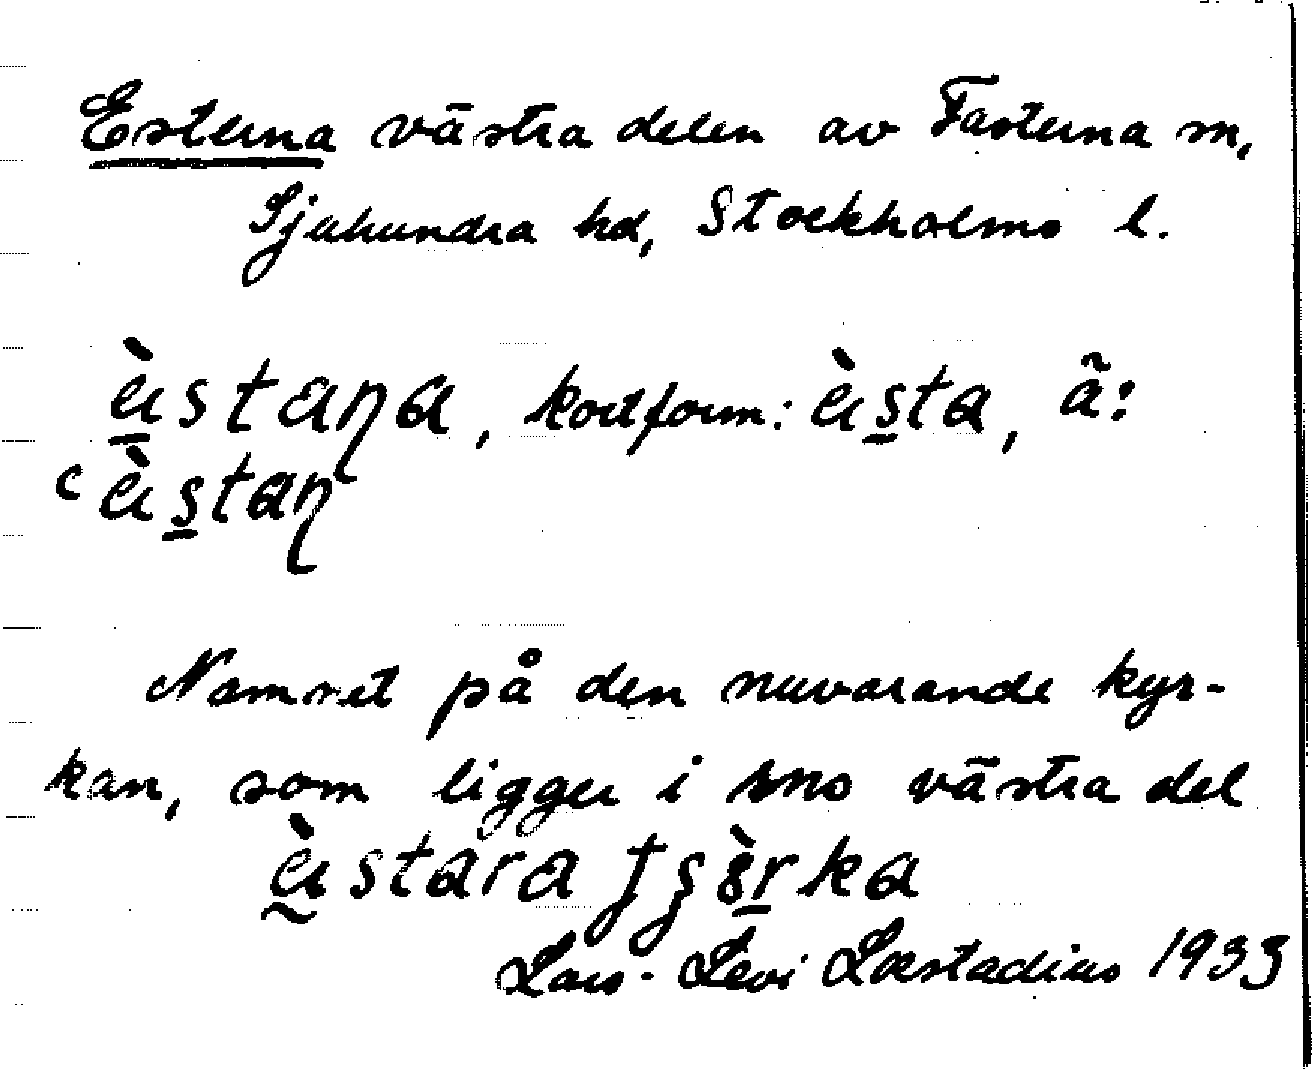 Esterna västra delen av Fasterna sn,
Sjuhundra hd, Stockholms l.
ästaŋa, kortform: ästa, ã:
ästaŋ
Namnet på den nuvarande kyr-
kan, som ligger i sns västra del
ästara
Lars-Levi Læstadius 1933